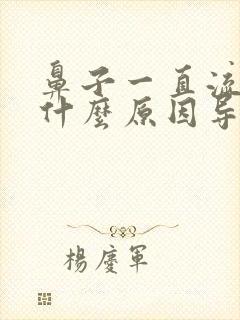 鼻子一直流
什麼原因导
楊慶軍